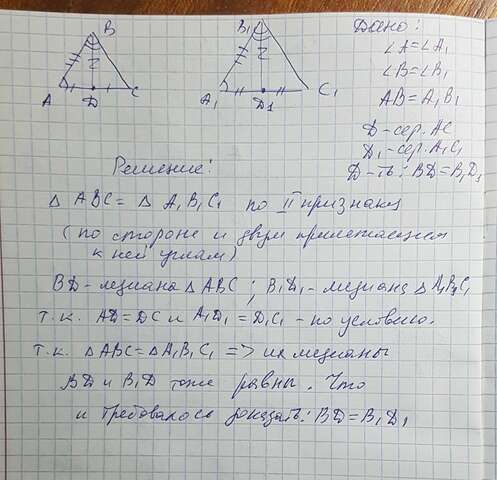 B
A
D
C
B₁
A₁
D1
C₁
Дано:
∠A=∠A₁
∠B=∠B₁
AB=A₁B₁
D-сер. AC
D₁-сер. A₁C₁
D-ть: BD=B₁D₁
Решение:
△ ABC = △ A₁B₁C₁ по II признаку
(по стороне и двум прилежащем
к ней углам)
BD-медиана △ ABC; B₁D₁-медиана △ A₁B₁C₁
т.к. AD=DC и A₁D₁=D₁C₁-по условию.
т.к. △ABC=△A₁B₁C₁ => их медианы
BD и B₁D тоже равны. Что
и требовалось доказать: BD=B₁D₁